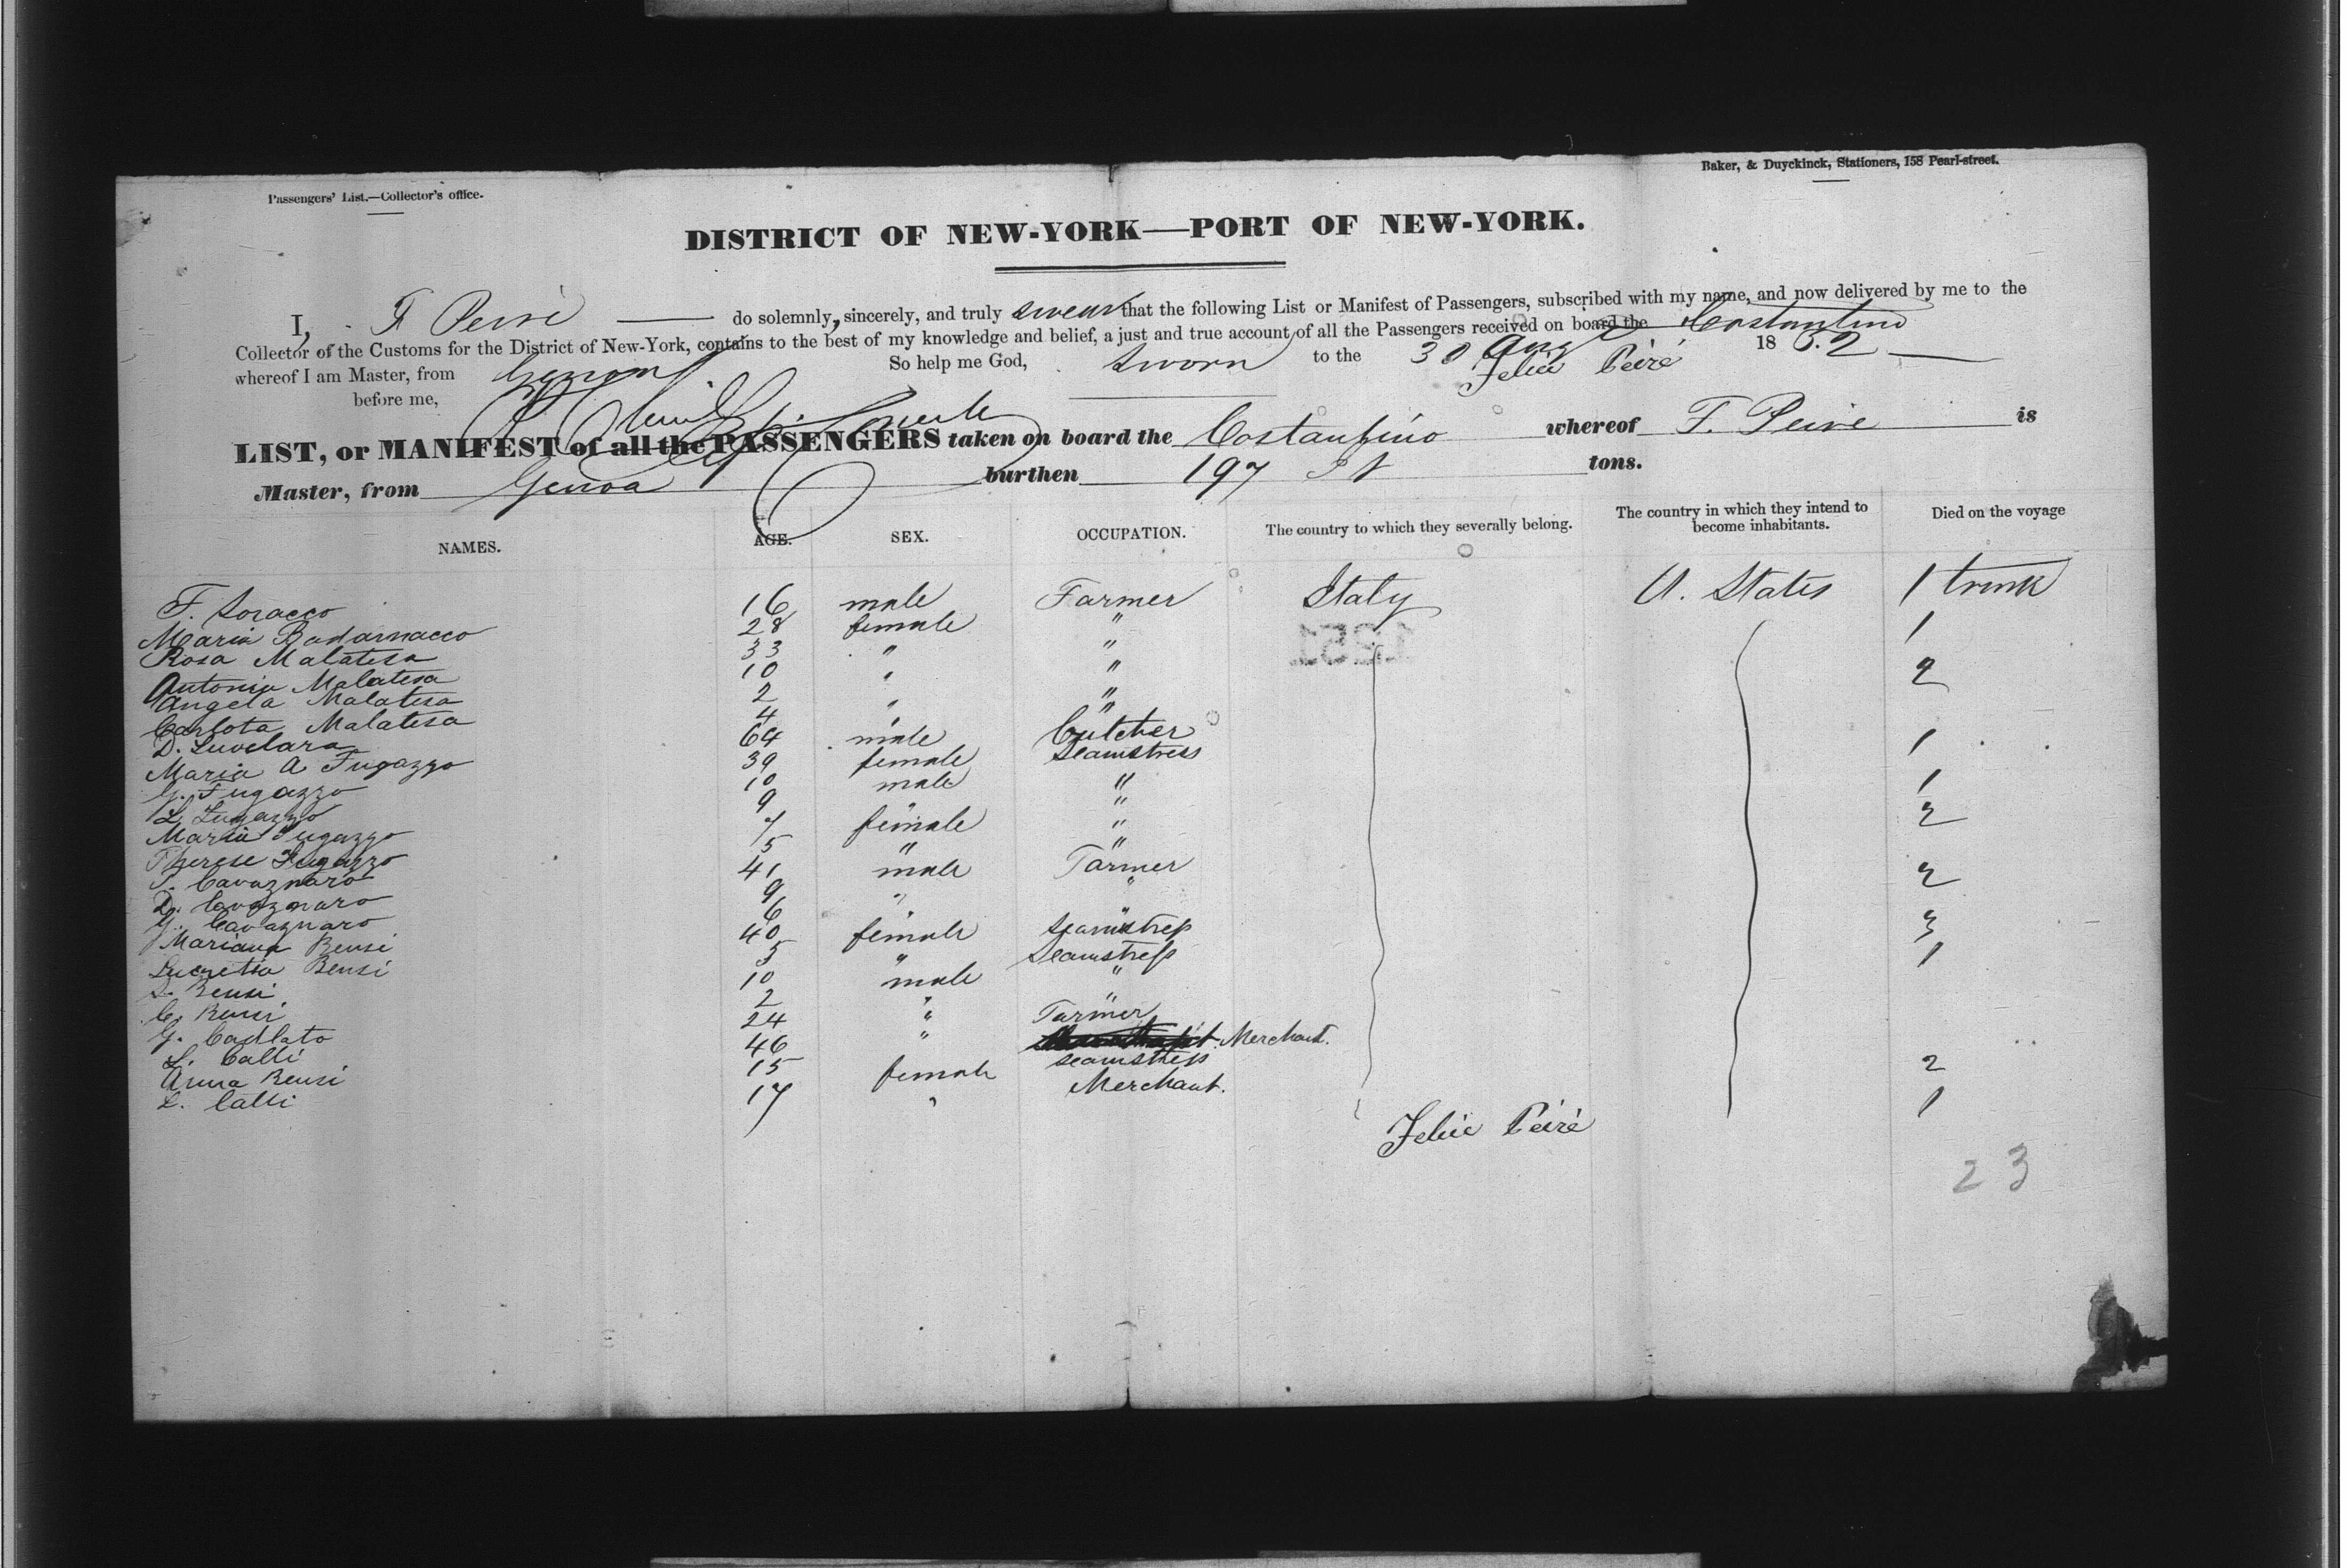 Passengers' List.—Collector's office.
Baker, & Duyckinck, Stationers, 158 Pearl-street.
DISTRICT OF NEW-YORK—PORT OF NEW-YORK.
I, F Peire do solemnly, sincerely, and truly swear that the following List or Manifest of Passengers, subscribed with my name, and now delivered by me to the
Collector of the Customs for the District of New-York, contains to the best of my knowledge and belief, a just and true account of all the Passengers received on board the Costantino
whereof I am Master, from Genoa So help me God, Sworn to the 30 Aug 1852
before me, Felice Peire
LIST, or MANIFEST of all the PASSENGERS taken on board the Costantino whereof F. Peire is
Master, from Genoa burthen 197 tons.
NAMES. AGE. SEX. OCCUPATION. The country to which they severally belong. The country in which they intend to become inhabitants. Died on the voyage
F. Soracco 16 male Farmer Italy U. States 1 trunk
Maria Badarnacco 28 female " 1
Rosa Malatesa 33 " "
Antonia Malatesa 10 " " 2
Angela Malatesa 2 " "
Carlota Malatesa 4 " "
D. Luvelara 64 male Butcher 1
Maria A Fugazzo 39 female Seamstress
G. Fugazzo 10 male " 1
L. Fugazzo 9 " " 2
Maria Fugazzo 7 female "
Therese Fugazzo 5 " "
Cavaznaro 41 male Farmer 2
D. Cavaznaro 9 " "
G. Cavaznaro 6 " "
Mariana Bensi 40 female Seamstress 3
Lucretia Bensi 5 " Seamstress 1
Bensi 10 male "
C. Bensi 2 " "
G. Cadlato 24 " Farmer
L. Calli 46 " Merchant.
Anna Bensi 15 female Seamstress 2
L. Calli 17 " Merchant. 1
Felice Peire
23